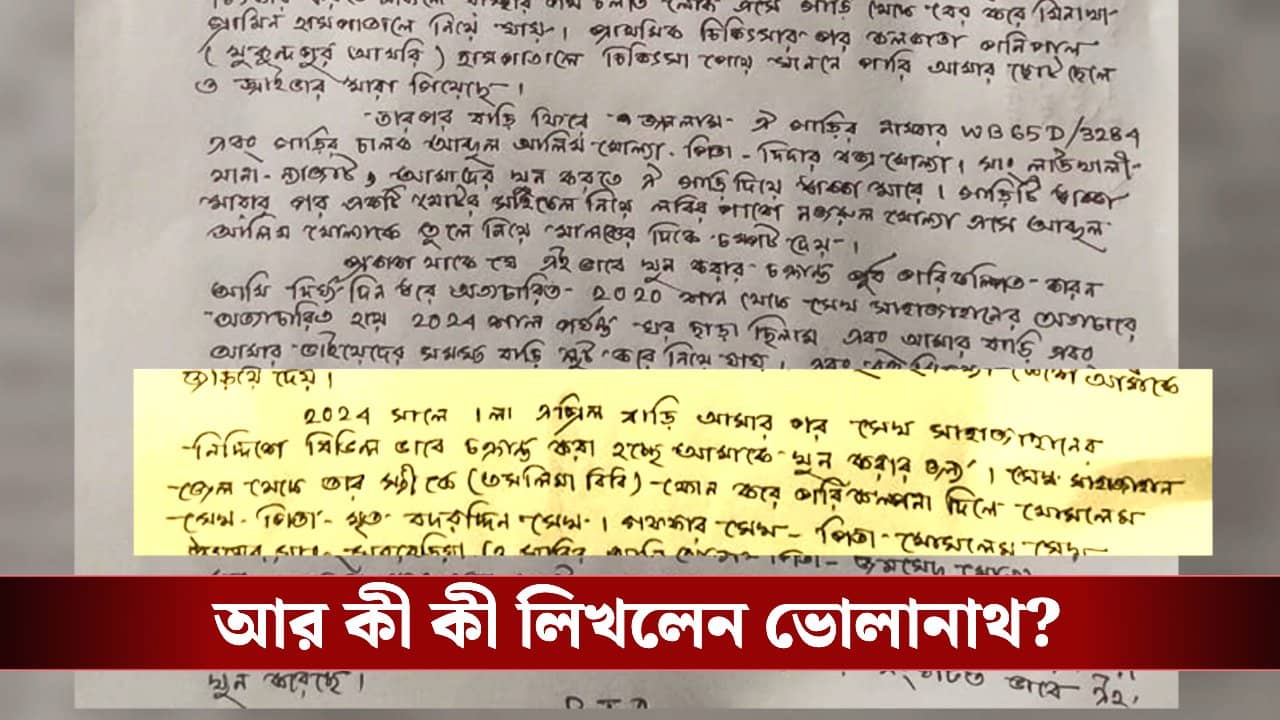 গ্রামিন হাসপাতালে নিয়ে যায়। প্রাথমিক চিকিৎসার পর কলকাতা মনিপাল
(মুকুন্দপুর আমরি) হাসপাতালে চিকিৎসা পেয়ে জানতে পারি আমার ছোট ছেলে
ও ড্রাইভার মারা গিয়েছে।
তারপর বাড়ি ফিরে শুনলাম ঐ গাড়ির নাম্বার WB65D/3284
এবং গাড়ির চালক আব্দুল আলিম মোল্যা। পিতা - দিদার বক্স মোল্যা। সাং লাউখালী-
থানা - ন্যাজাট, আমাদের খুন করতে ঐ গাড়ি দিয়ে ধাক্কা মারে। গাড়িটি ধাক্কা
মারার পর একটি মোটর সাইকেল নিয়ে লরির পাশে নজরুল মোল্যা এসে আব্দুল
আলিম মোল্যাকে তুলে নিয়ে মালঞ্চের দিকে চম্পট দেয়।
প্রকাশ থাকে যে এই ভাবে খুন করার চক্রান্ত পূর্ব পরিকল্পিত - কারন
আমি দীর্ঘ দিন ধরে অত্যাচারিত - 2020 শাল থেকে সেখ সাহাজাহানের অত্যাচারে
অত্যাচারিত হয়ে 2024 শাল পর্যন্ত ঘর ছাড়া ছিলাম এবং আমার বাড়ি এবং
আমার ভাইয়েদের সমস্ত বাড়ি লুট করে নিয়ে যায়। এবং
তাড়িয়ে দেয়।
2024 সালে ১লা এপ্রিল বাড়ি আসার পর সেখ সাহাজাহানের
নির্দ্দিশে বিভিন্ন ভাবে চক্রান্ত করা হচ্ছে আমাকে খুন করার জন্য। সেখ সাহাজাহান
জেল থেকে তার স্ত্রী কে (তসলিমা বিবি) ফোন করে পরিকল্পনা দিলে মোসলেম
সেখ - পিতা - মৃত বদরদ্দিন সেখ। গফফার সেখ - পিতা - মোসলেম সেখ
আর কী কী লিখলেন ভোলানাথ?
ভাবে ঐই,
খুন করেছে।